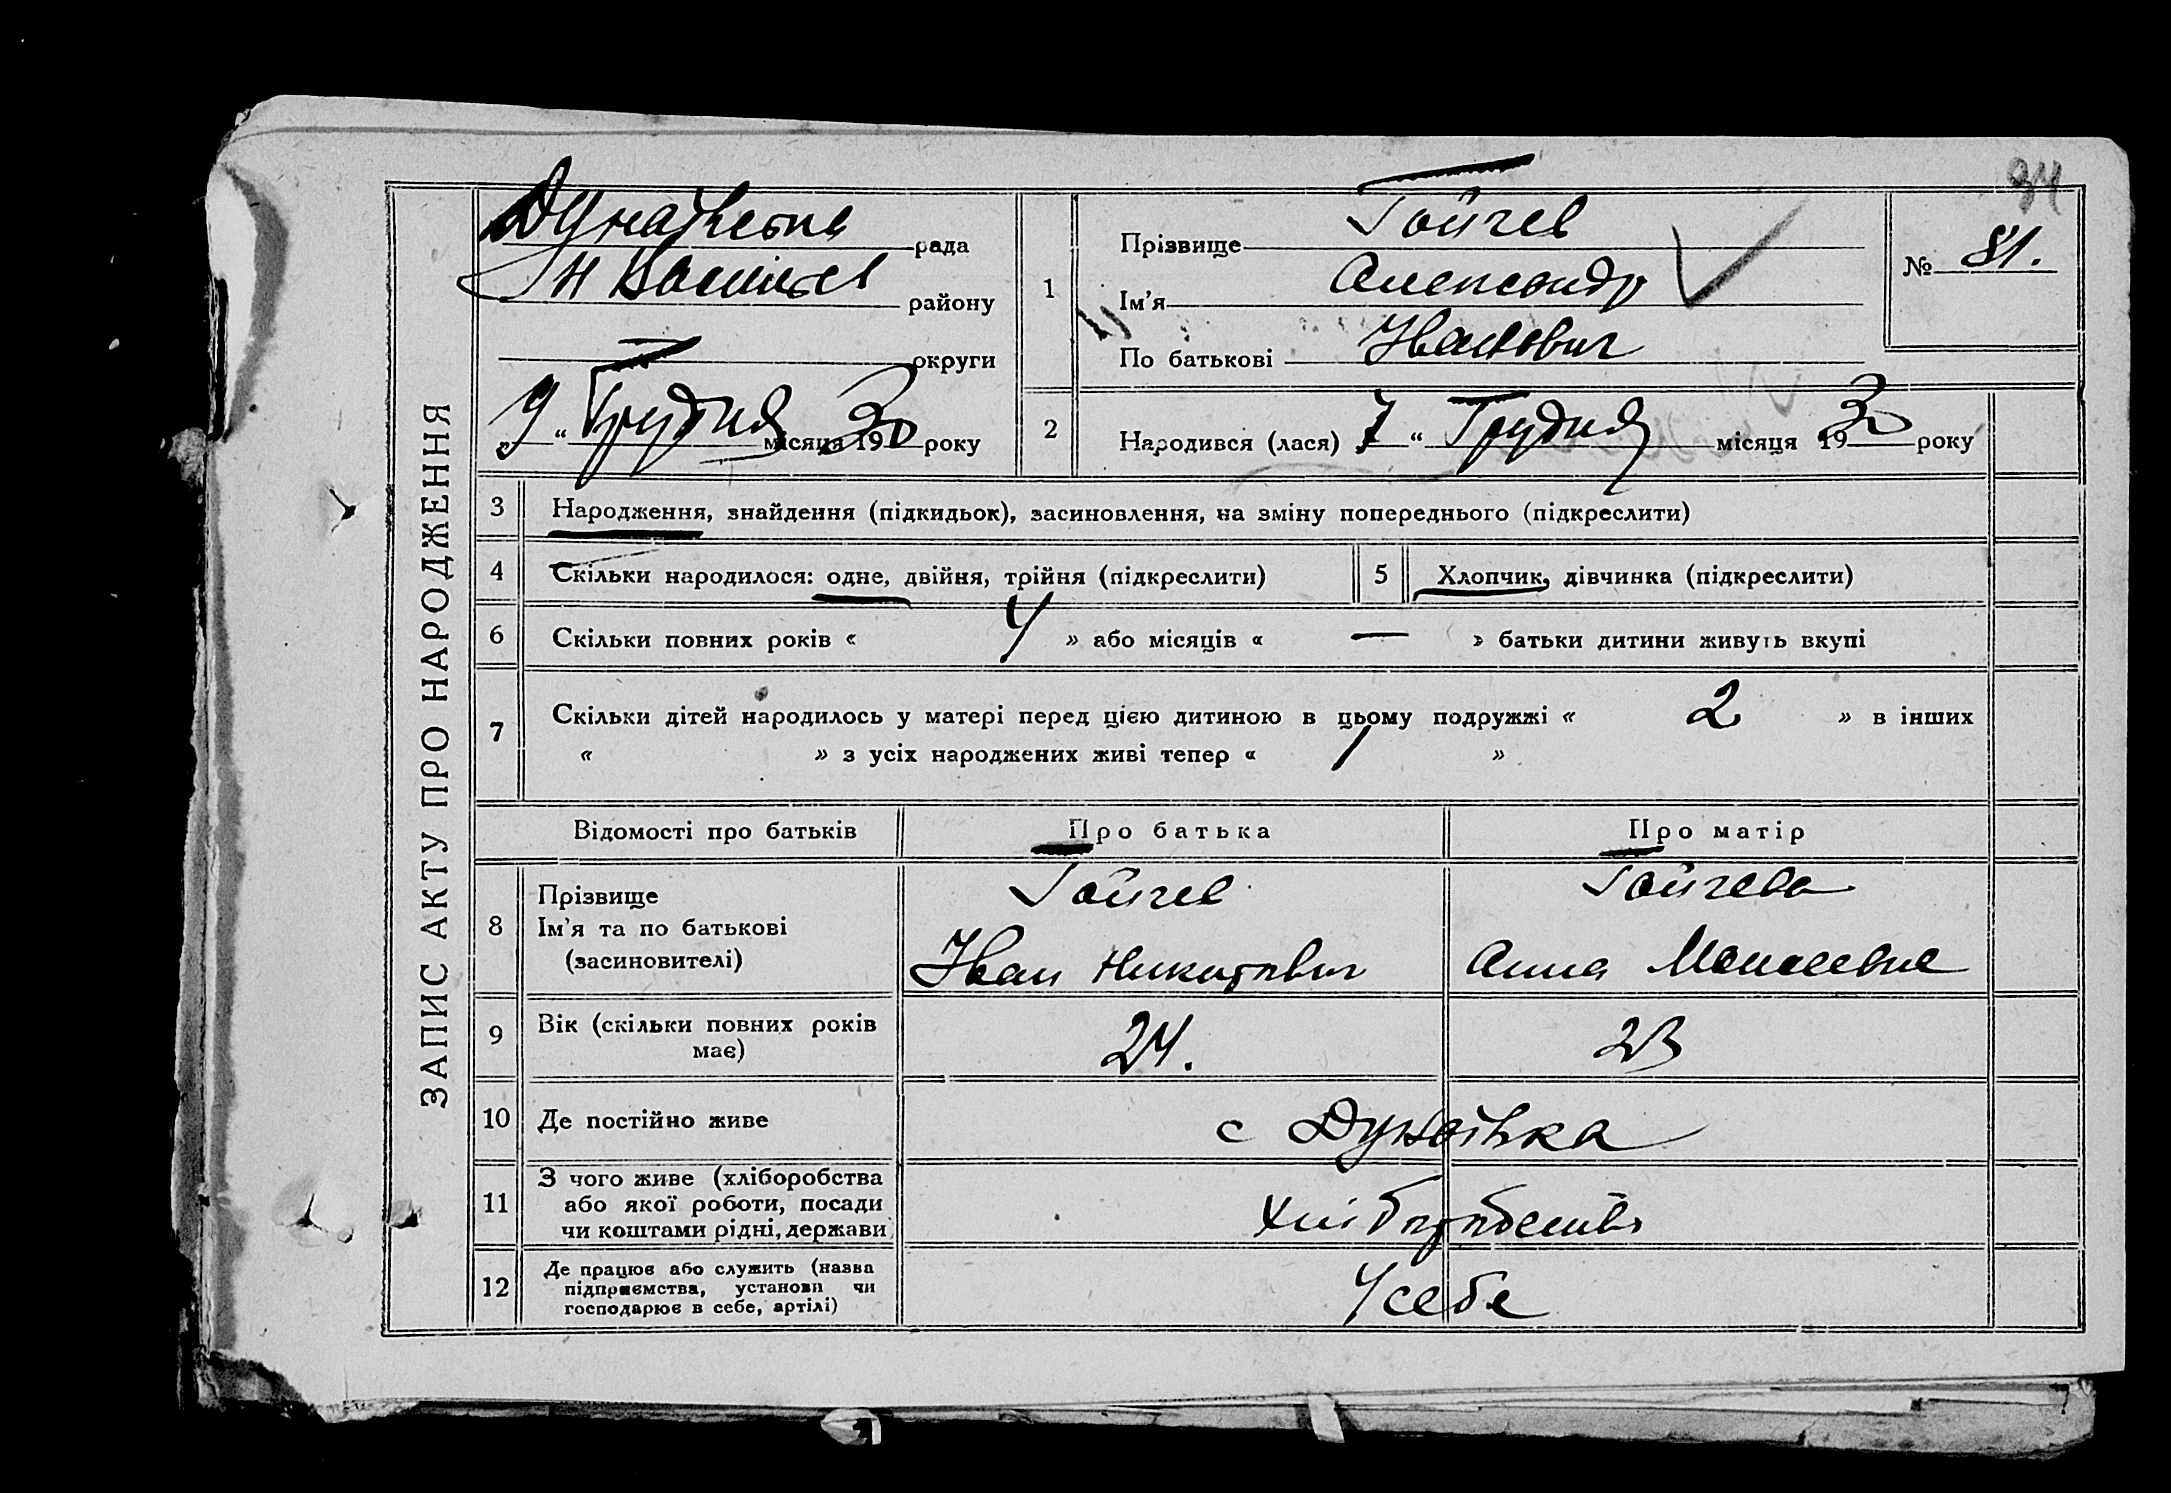 94
ЗАПИС АКТУ ПРО НАРОДЖЕННЯ
Дунаївська рада
Н Васильев району
округи
„9“ Грудня місяця 1930 року
1
Прізвище Гойчев
Ім'я Александр
По батькові Иванович
№ 81.
2
Народився (лася) 7 “ Грудня місяця 1930 року
3 Народження, знайдення (підкидьок), засиновлення, на зміну попереднього (підкреслити)
4 Скільки народилося: одне, двійня, трійня (підкреслити) 5 Хлопчик, дівчинка (підкреслити)
6 Скільки повних років « 4 » або місяців « — » батьки дитини живуть вкупі
7 Скільки дітей народилось у матері перед цією дитиною в цьому подружжі « 2 » в інших
« » з усіх народжених живі тепер « 1 »
Відомості про батьків Про батька Про матір
8
Прізвище Гойчев Гойчева
Ім'я та по батькові
(засиновителі) Иван Никитович Анна Моисеевна
9 Вік (скільки повних років
має) 24. 23
10 Де постійно живе с Дунаївка
11
З чого живе (хліборобства
або якої роботи, посади
чи коштами рідні, держави
хліборобство
12
Де працює або служить (назва
підприємства, установи чи
господарює в себе, артілі)
У себе